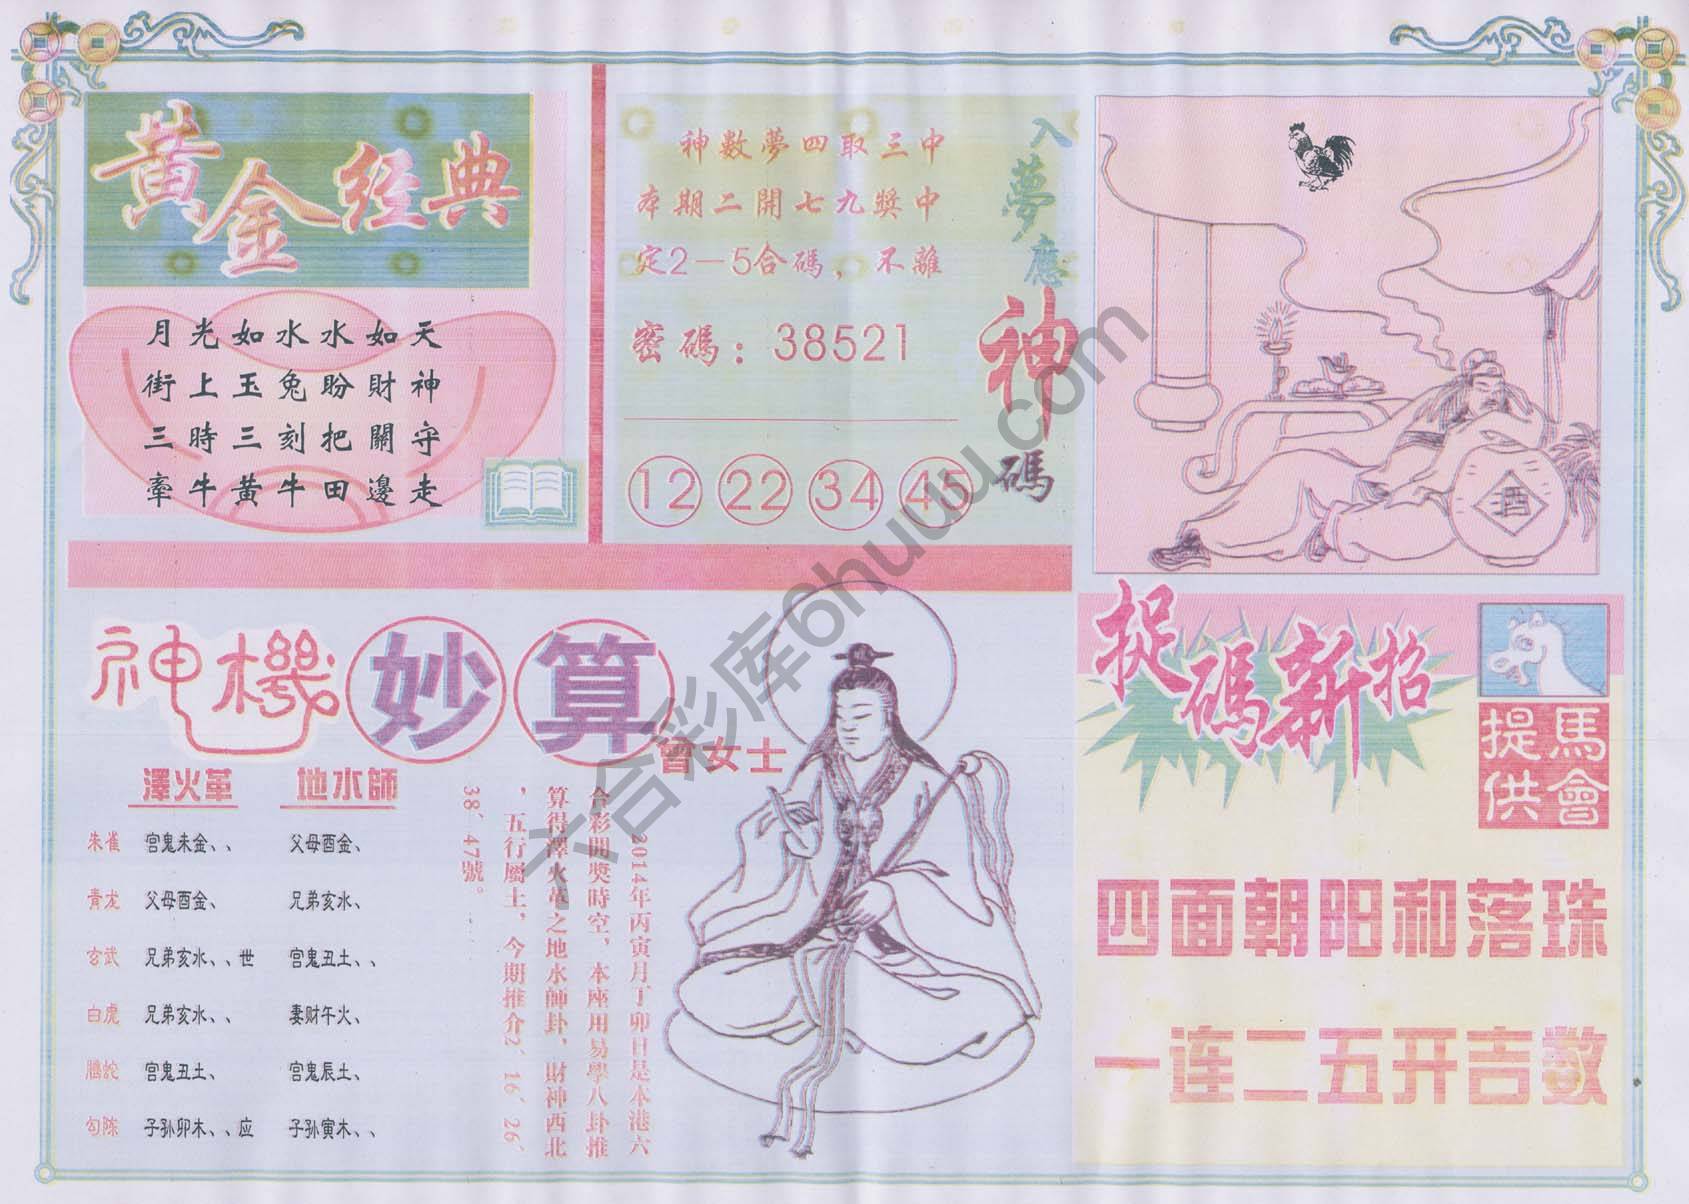 黄金经典
月光如水水如天
街上玉兔盼財神
三時三刻把關守
牽牛黄牛田邊走
神數夢四取三中
本期二開七九獎中
定2－5合碼，不離
密碼：38521
12 22 34 45
入夢應神碼
酒
神機妙算
曾女士
澤火革 地水師
朱雀 官鬼未金、、 父母酉金、
青龙 父母酉金、 兄弟亥水、
玄武 兄弟亥水、、世 官鬼丑土、、
白虎 兄弟亥水、、 妻财午火、
騰蛇 官鬼丑土、 官鬼辰土、
勾陈 子孙卯木、、应 子孙寅木、、
2014年丙寅月丁卯日是本港六
合彩開獎時空，本座用易學八卦推
算得澤火革之地水師卦，財神西北
，五行屬土，今期推介2、16、26、
38、47號。
捉碼新招
馬會
提供
四面朝阳和落珠
一连二五开吉数
六合彩库6huuu.com